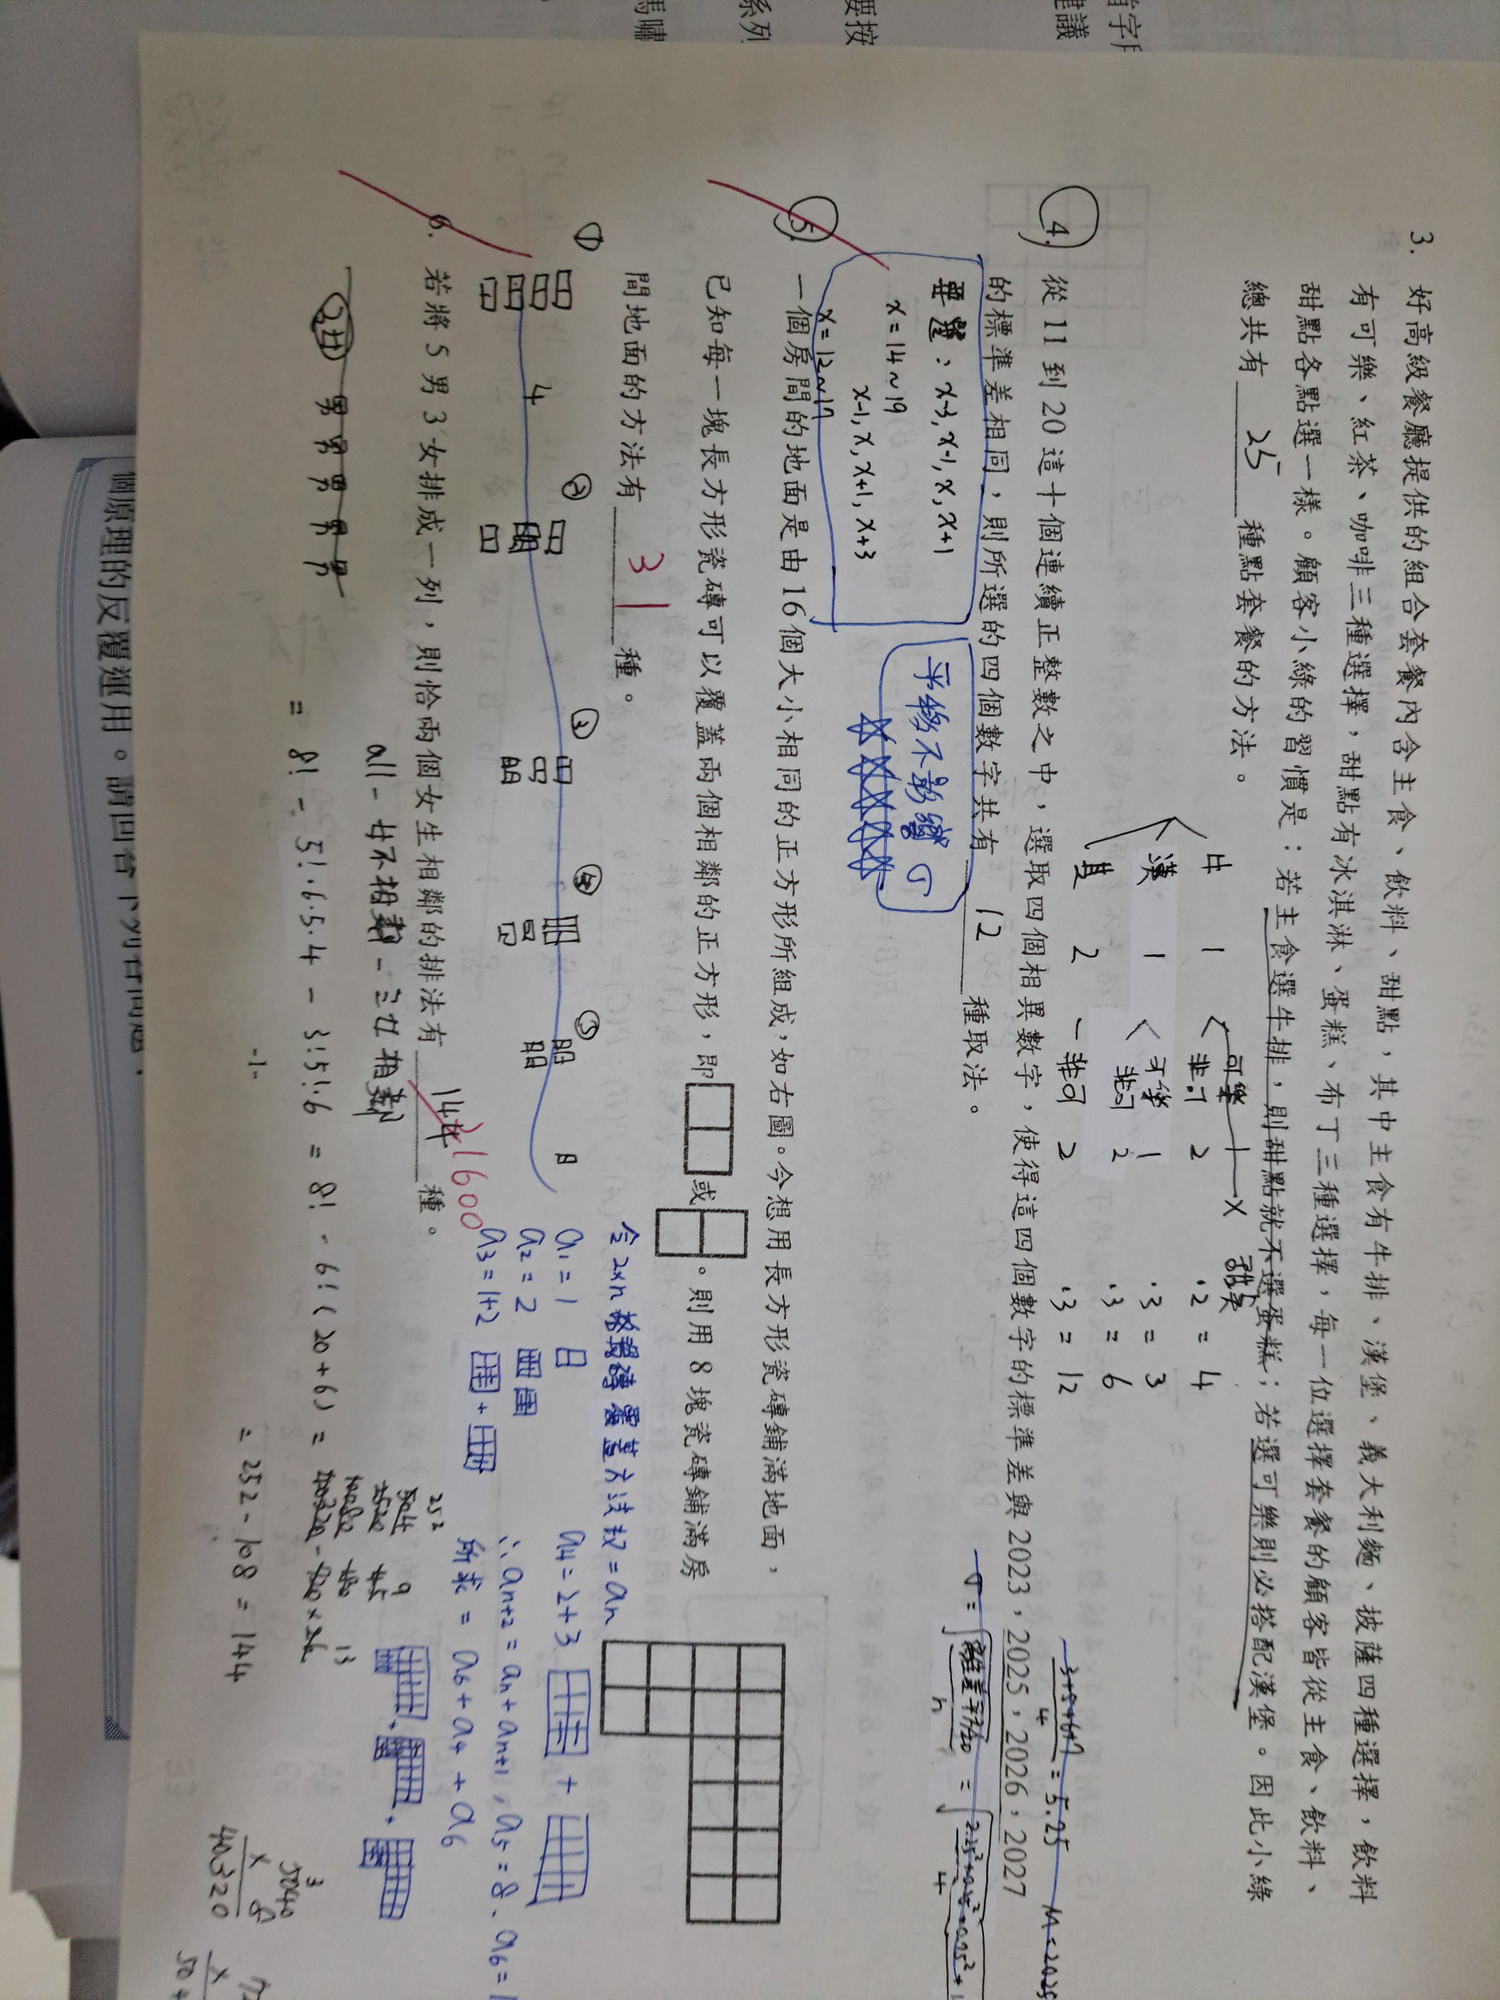 3. 好高級餐廳提供的組合套餐內含主食、飲料、甜點，其中主食有牛排、漢堡、義大利麵、披薩四種選擇，飲料
有可樂、紅茶、咖啡三種選擇，甜點有冰淇淋、蛋糕、布丁三種選擇，每一位選擇套餐的顧客皆從主食、飲料、
甜點各點選一樣。顧客小綠的習慣是：若主食選牛排，則甜點就不選蛋糕；若選可樂則必搭配漢堡。因此小綠
總共有 25 種點套餐的方法。
牛 1 可樂 X
非可 2 ·2 = 4
漢 1 可樂 1 ·3 = 3
非可 2 ·3 = 6
其 2 — 非可 2 ·3 = 12
4. 從 11 到 20 這十個連續正整數之中，選取四個相異數字，使得這四個數字的標準差與 2023，2025，2026，2027
的標準差相同，則所選的四個數字共有 12 種取法。
x-3, x-1, x, x+1
x = 14~19
x-1, x, x+1, x+3
x = 12~17
平移不影響 σ
= 5.25
5. 一個房間的地面是由 16 個大小相同的正方形所組成，如右圖。今想用長方形瓷磚鋪滿地面，
已知每一塊長方形瓷磚可以覆蓋兩個相鄰的正方形，即 或 。則用 8 塊瓷磚鋪滿房
間地面的方法有 31 種。
① ② ③ ④ ⑤
4
令 2×n 方法數 = an
a1 = 1
a2 = 2
a3 = 1+2
a4 = 2+3
∴ an+2 = an + an+1, a5 = 8、a6 = 1
所求 = a6 + a4 + a6
6. 若將 5 男 3 女排成一列，則恰兩個女生相鄰的排法有 144 21600 種。
男 男 男 男
all - 女不相鄰 - 三女相鄰
= 8! - 5!·6·5·4 - 3!5!·6 = 8! - 6!(20+6) =
= 252 - 108 = 144
5040
x 8
40320
-1-
個原理的反覆運用。請回答下列各問題：